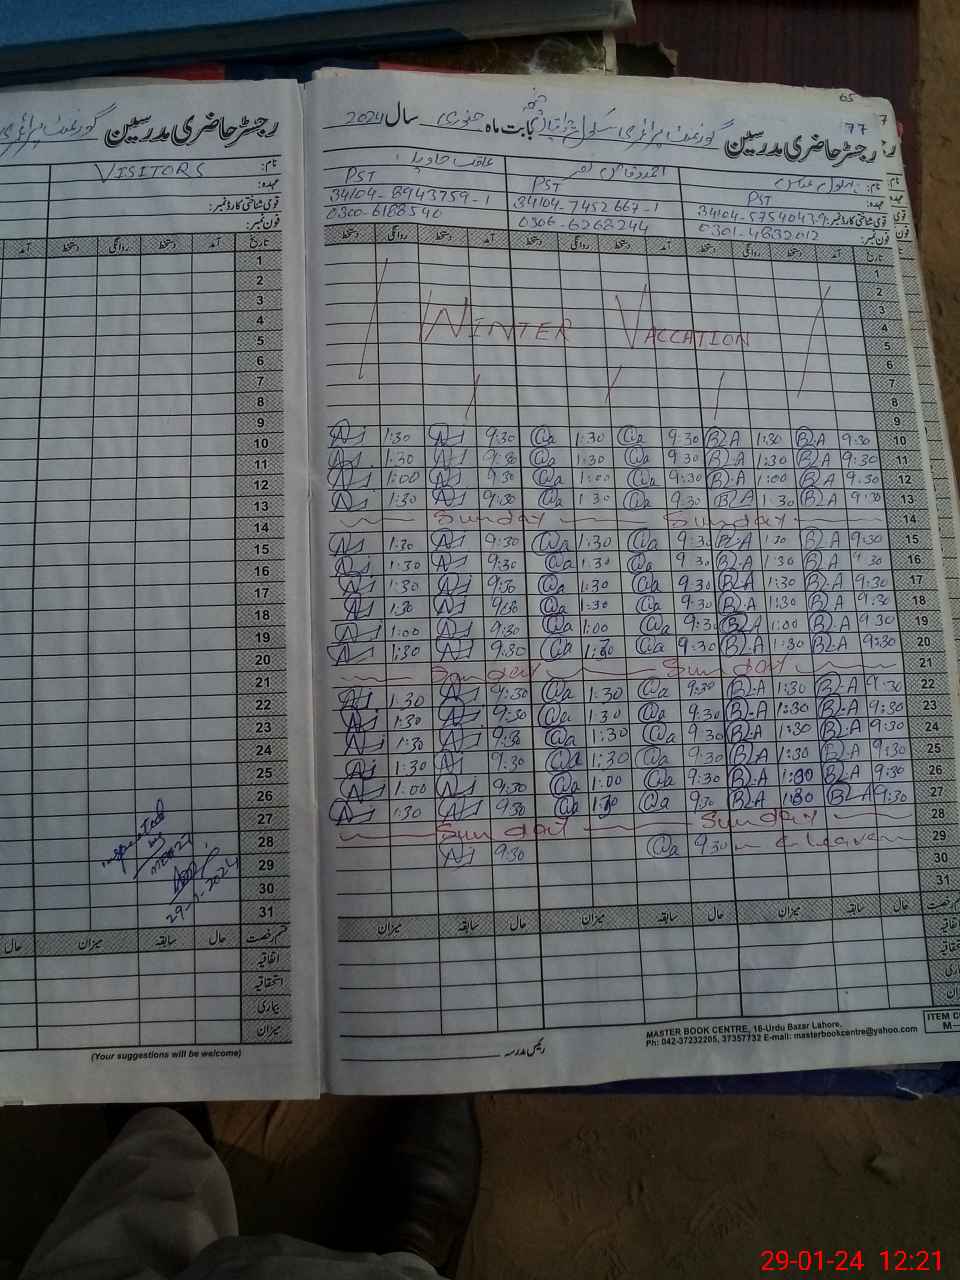 65
77
رجسٹر حاضری مدرسین گورنمنٹ پرائمری سکول بابت ماہ جنوری سال 2024
نام:
عہدہ: PST PST PST
قومی شناختی کارڈ نمبر: 34104-5754043-9 34104-7452667-1 34104-8943759-1
فون نمبر: 0301-4832012 0306-6268244 0300-6188540
تاریخ آمد دستخط روانگی دستخط آمد دستخط روانگی دستخط آمد دستخط روانگی دستخط
1
2
3
4
WINTER VACCATION
5
6
7
8
9
10 9:30 B.A 1:30 B.A 9:30 @a 1:30 @a 9:30 1:30
11 9:30 B.A 1:30 B.A 9:30 @a 1:30 @a 9:30 1:30
12 9:30 B.A 1:00 B.A 9:30 @a 1:00 @a 9:30 1:00
13 9:30 B.A 1:30 B.A 9:30 @a 1:30 @a 9:30 1:30
14 Sunday Sunday
15 9:30 B.A 1:30 B.A 9:30 @a 1:30 @a 9:30 1:30
16 9:30 B.A 1:30 B.A 9:30 @a 1:30 @a 9:30 1:30
17 9:30 B.A 1:30 B.A 9:30 @a 1:30 @a 9:30 1:30
18 9:30 B.A 1:30 B.A 9:30 @a 1:30 @a 9:30 1:30
19 9:30 B.A 1:00 B.A 9:30 @a 1:00 @a 9:30 1:00
20 9:30 B.A 1:30 B.A 9:30 @a 1:30 @a 9:30 1:30
21 Sunday Sunday
22 9:30 B.A 1:30 B.A 9:30 @a 1:30 @a 9:30 1:30
23 9:30 B.A 1:30 B.A 9:30 @a 1:30 @a 9:30 1:30
24 9:30 B.A 1:30 B.A 9:30 @a 1:30 @a 9:30 1:30
25 9:30 B.A 1:30 B.A 9:30 @a 1:30 @a 9:30 1:30
26 9:30 B.A 1:00 B.A 9:30 @a 1:00 @a 9:30 1:00
27 9:30 B.A 1:30 B.A 9:30 @a 1:30 @a 9:30 1:30
28 Sunday Sunday
29 Leave 9:30 @a 9:30
30
31
حال سابقہ میزان حال سابقہ میزان حال سابقہ میزان
رئیس مدرسہ
MASTER BOOK CENTRE, 16-Urdu Bazar Lahore,
Ph: 042-37232205, 37357732 E-mail: masterbookcentre@yahoo.com
ITEM C
M-
رجسٹر حاضری مدرسین گورنمنٹ پرائمری
نام: VISITORS
عہدہ:
قومی شناختی کارڈ نمبر:
فون نمبر:
تاریخ آمد دستخط روانگی دستخط آمد
1
2
3
4
5
6
7
8
9
10
11
12
13
14
15
16
17
18
19
20
21
22
23
24
25
26
27
28
29
30
31
inspected
by
29-1-2024
قسم رخصت حال سابقہ میزان حال
اتفاقیہ
استحقاقیہ
بیماری
میزان
(Your suggestions will be welcome)
29-01-24 12:21